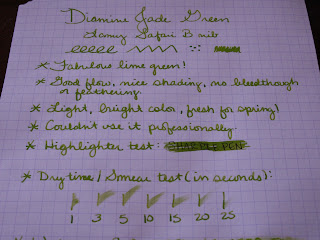 Diamine Jade Green
Lamy Safari B nib
* Fabulous lime green!
* Good flow, nice shading, no bleedthough
or feathering.
* Light, bright color, fresh for spring!
* Couldn't use it professionally.
* Highlighter test: SHARPIE PEN
* Dry time/Smear test (in seconds):
1 3 5 10 15 20 25